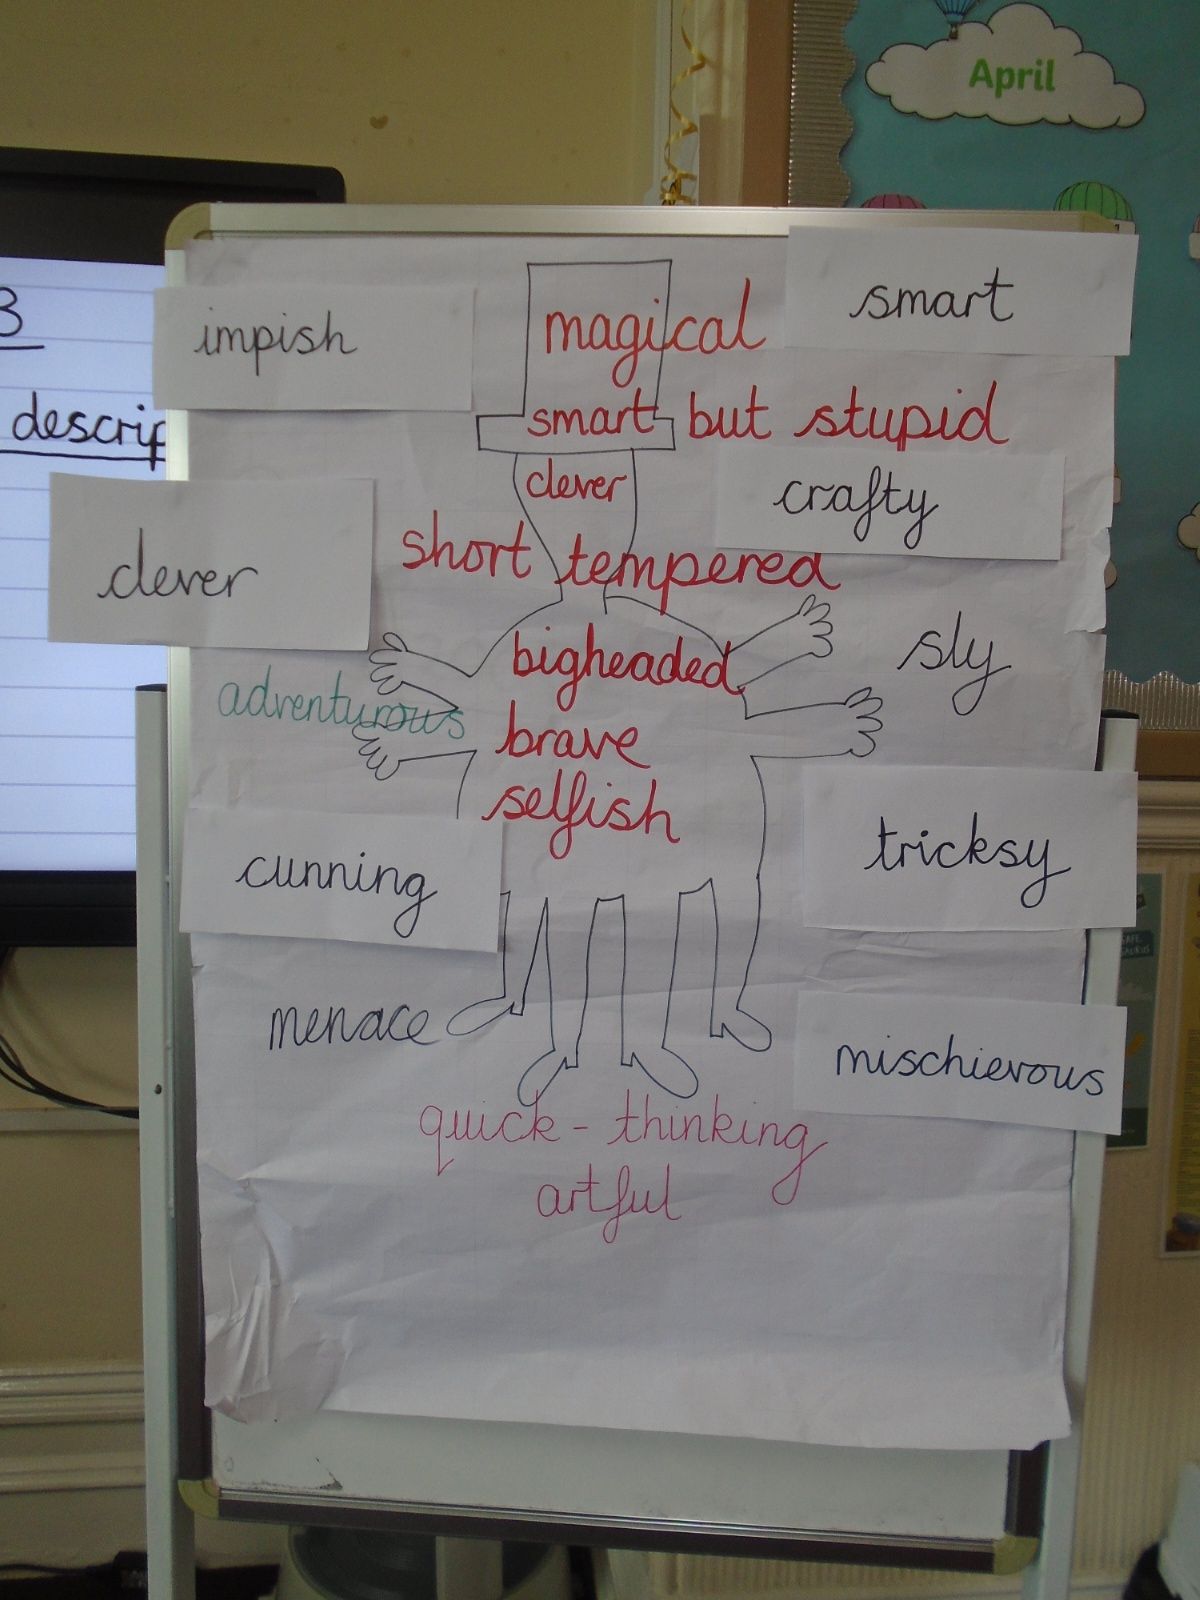 April
3
descrip
impish
magical
smart
smart but stupid
clever
crafty
clever
short tempered
bigheaded
sly
adventurous
brave
selfish
cunning
tricksy
menace
mischievous
quick-thinking
artful